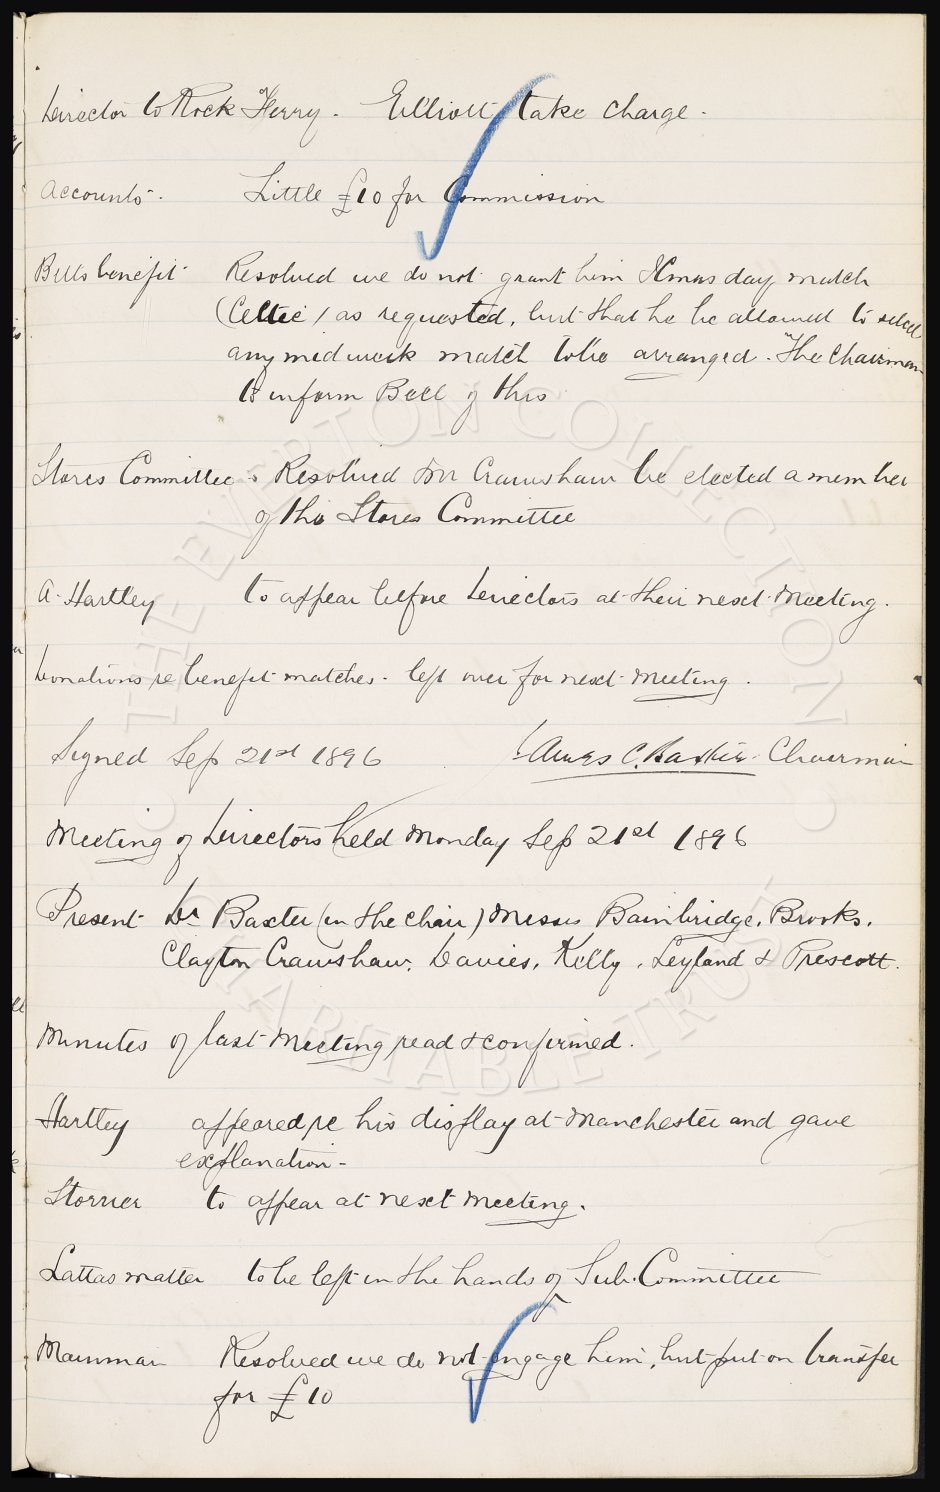 Director to Rock Ferry. Elliott take charge.
Accounts. Little £10 for Commission
Bells benefit Resolved we do not grant him Xmas day match
(Celtic) as requested, but that he be allowed to select
any midweek match to be arranged. The Chairman
to inform Bell of this
Stores Committee. Resolved Mr Crawshaw be elected a member
of the Stores Committee
A. Hartley to appear before Directors at their next Meeting.
Donations re benefit matches. left over for next meeting.
Signed Sep 21st 1896 James C. Baxter Chairman
Meeting of Directors held Monday Sep 21st 1896
Present Dr Baxter (in the chair) Messrs Bainbridge, Brooks,
Clayton Crawshaw, Davies, Kelly, Leyland & Prescott.
Minutes of last Meeting read & confirmed.
Hartley appeared re his display at Manchester and gave
explanation -
Storrier to appear at next meeting.
Lattas matter to be left in the hands of Sub. Committee
Mainman Resolved we do not engage him, but put on transfer
for £10
THE EVERTON COLLECTION
CHARITABLE TRUST